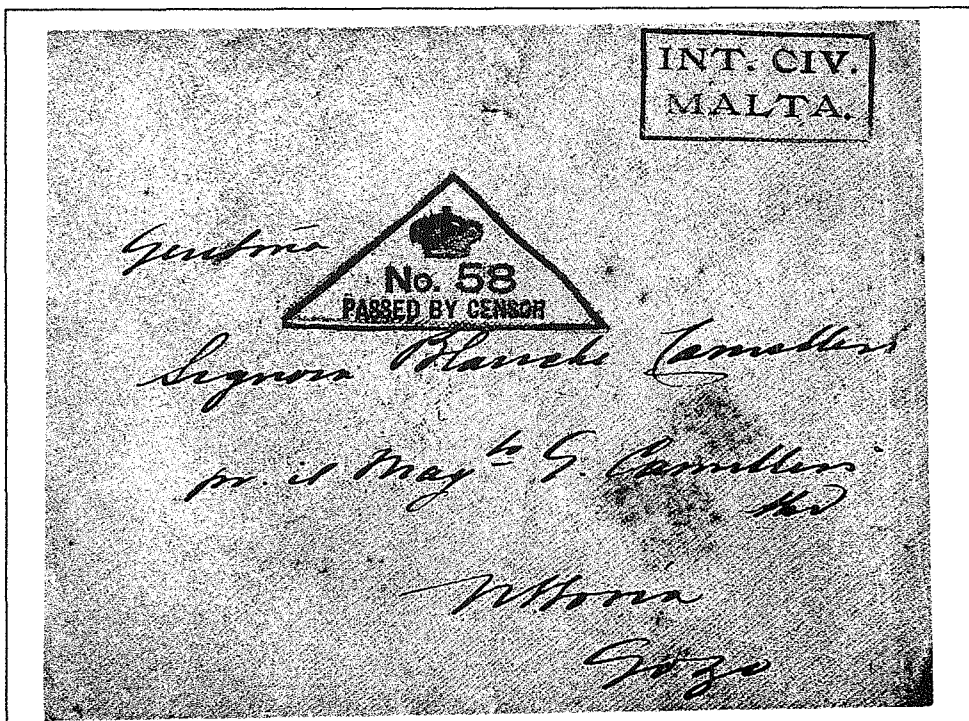 INT. CIV.
MALTA.
No. 58
PASSED BY CENSOR
Signora Blanche Camilleri
pr. il Mag<sup>to</sup> G. Camilleri
Vittoria
Gozo